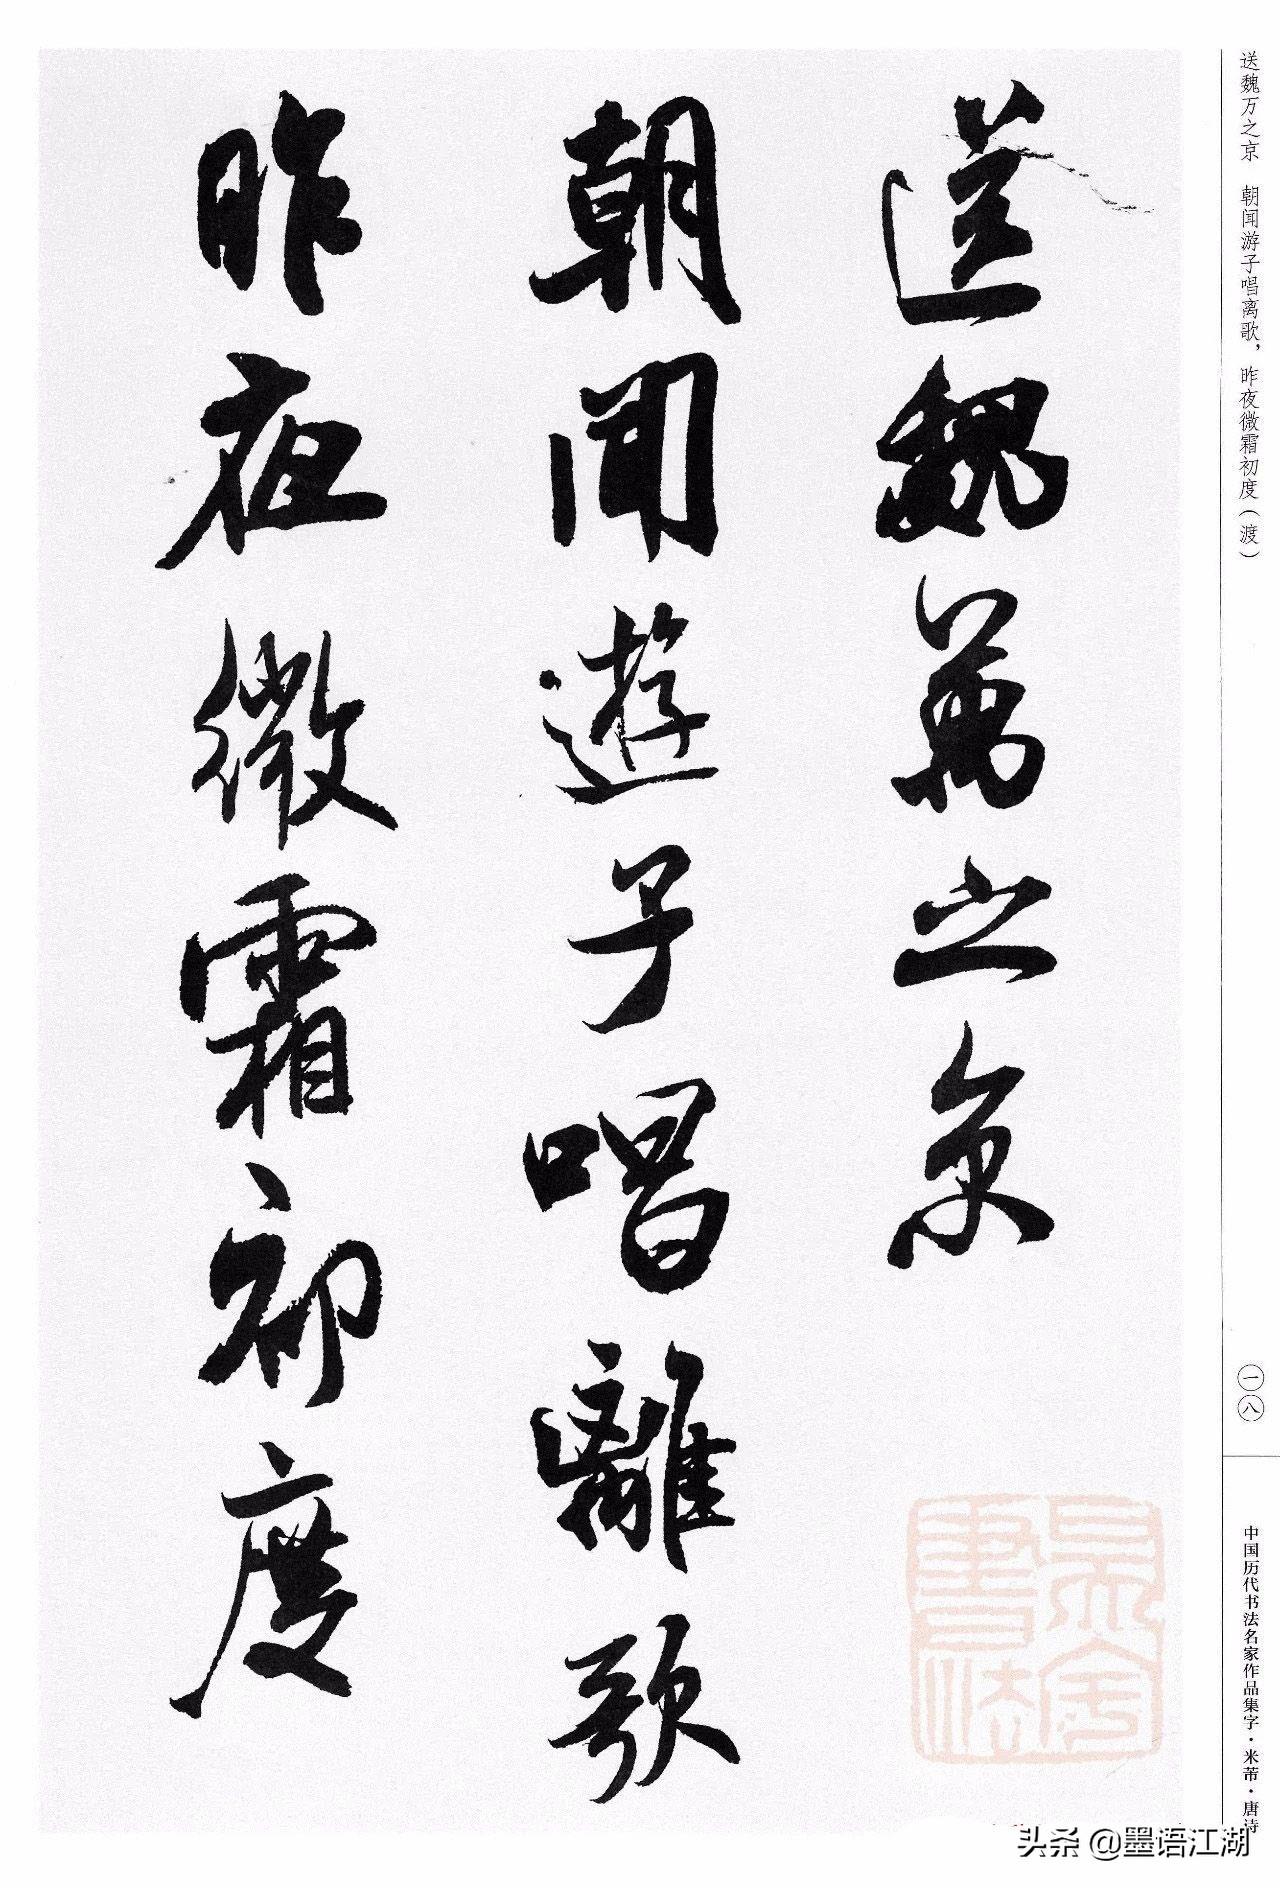 送魏萬之京
朝聞遊子唱離歌
昨夜微霜初度
送魏万之京　朝闻游子唱离歌，昨夜微霜初度（渡）
一八
中国历代书法名家作品集字·米芾·唐诗
头条 @墨语江湖